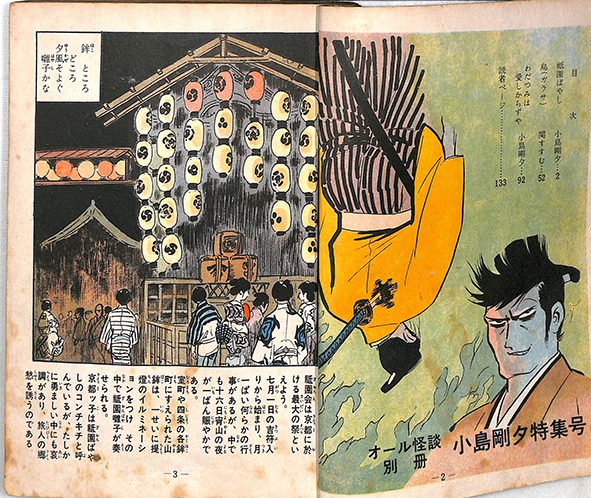 目次
祗園ばやし 小島剛夕‥2
烏(ガラサ) 関すすむ‥52
わだつみは
愛しからずや 小島剛夕‥92
読者ページ………………133
オール怪談
別冊
小島剛夕特集号
—2—
鉾ところ
どころ
夕風そよぐ
囃子かな
祗園会は京都に於
ける最大の祭とい
えよう。
七月一日の吉符入
りから始まり、一月
一ぱい何らかの行
事があるが、中で
も十六日宵山の夜
が一ばん賑やかで
ある。
室町や四条の各鉾
町にすえられた山
鉾は、一せいに提
燈のイルミネーシ
ョンをつけ、その
中で祗園囃子が奏
せられる。
京都ッ子は祗園ばや
しのコンチキチと呼
んでいるが、たしか
に勇ましい中にも哀
調があり、旅人の郷
愁を誘うのである
—3—